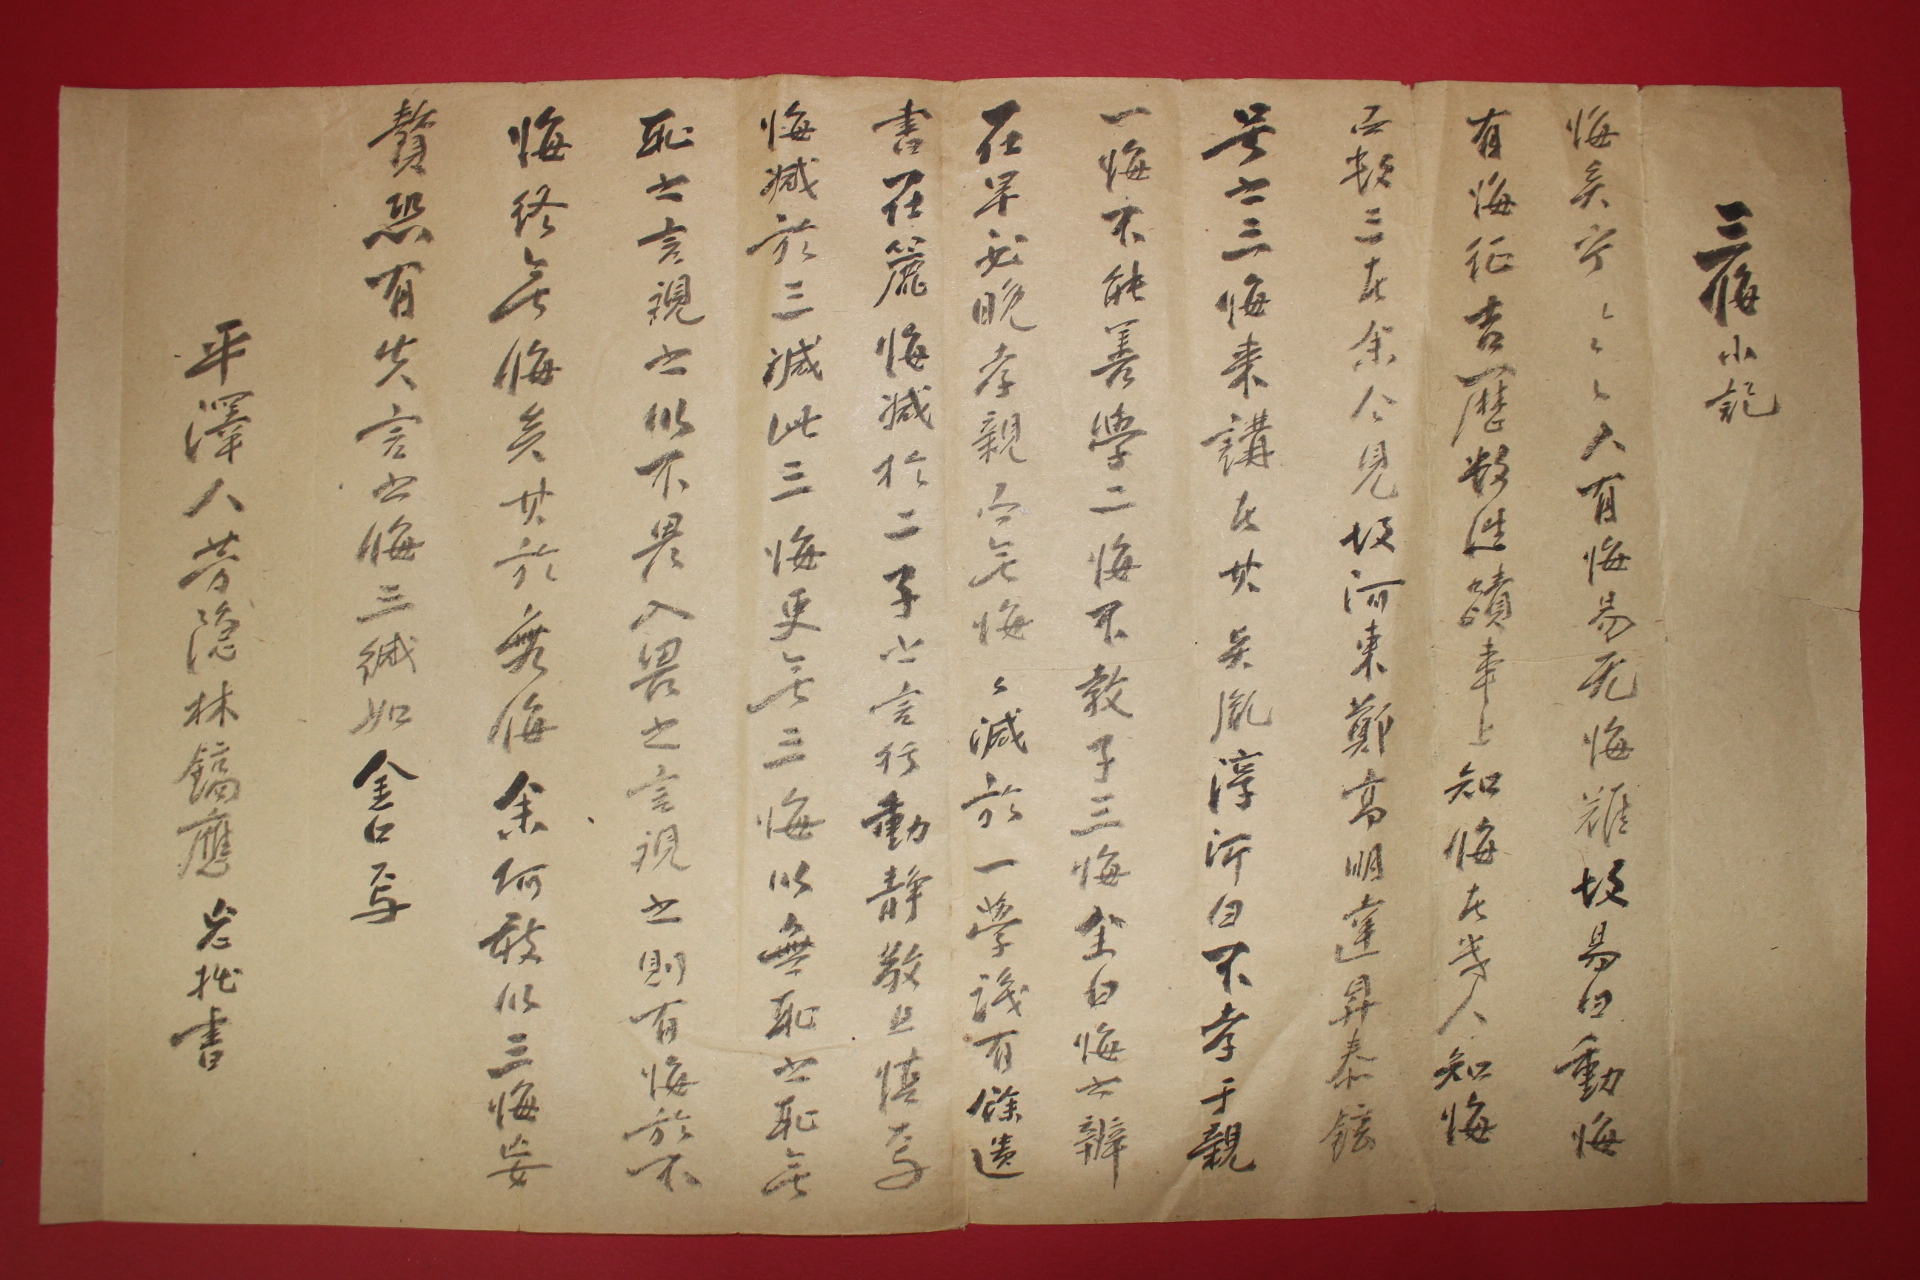 三悔小記
悔矣乎〻〻〻人有悔易無悔難故易曰動悔
有悔征吉歷數進蹟事上知悔在幾人知悔
而哉三在余今見故河東鄭高明達昇泰鉉
号之三悔來講在其矣胤淳沂曰不孝于親
一悔不能善學二悔不教子三悔余曰悔之辨
在早必晚孝親今無悔〻減於一學識有餘遺
書在篋悔減於二子之言行動靜敬且愼存
悔減於三減此三悔更無三悔以無恥之恥無
恥之言視之似不畏入畏之言視之則有悔於不
悔終無悔矣其於無悔余何敢以三悔妄
贅恐有失言之悔三緘如金口写
平澤人芳隱林鎬應忘拙書